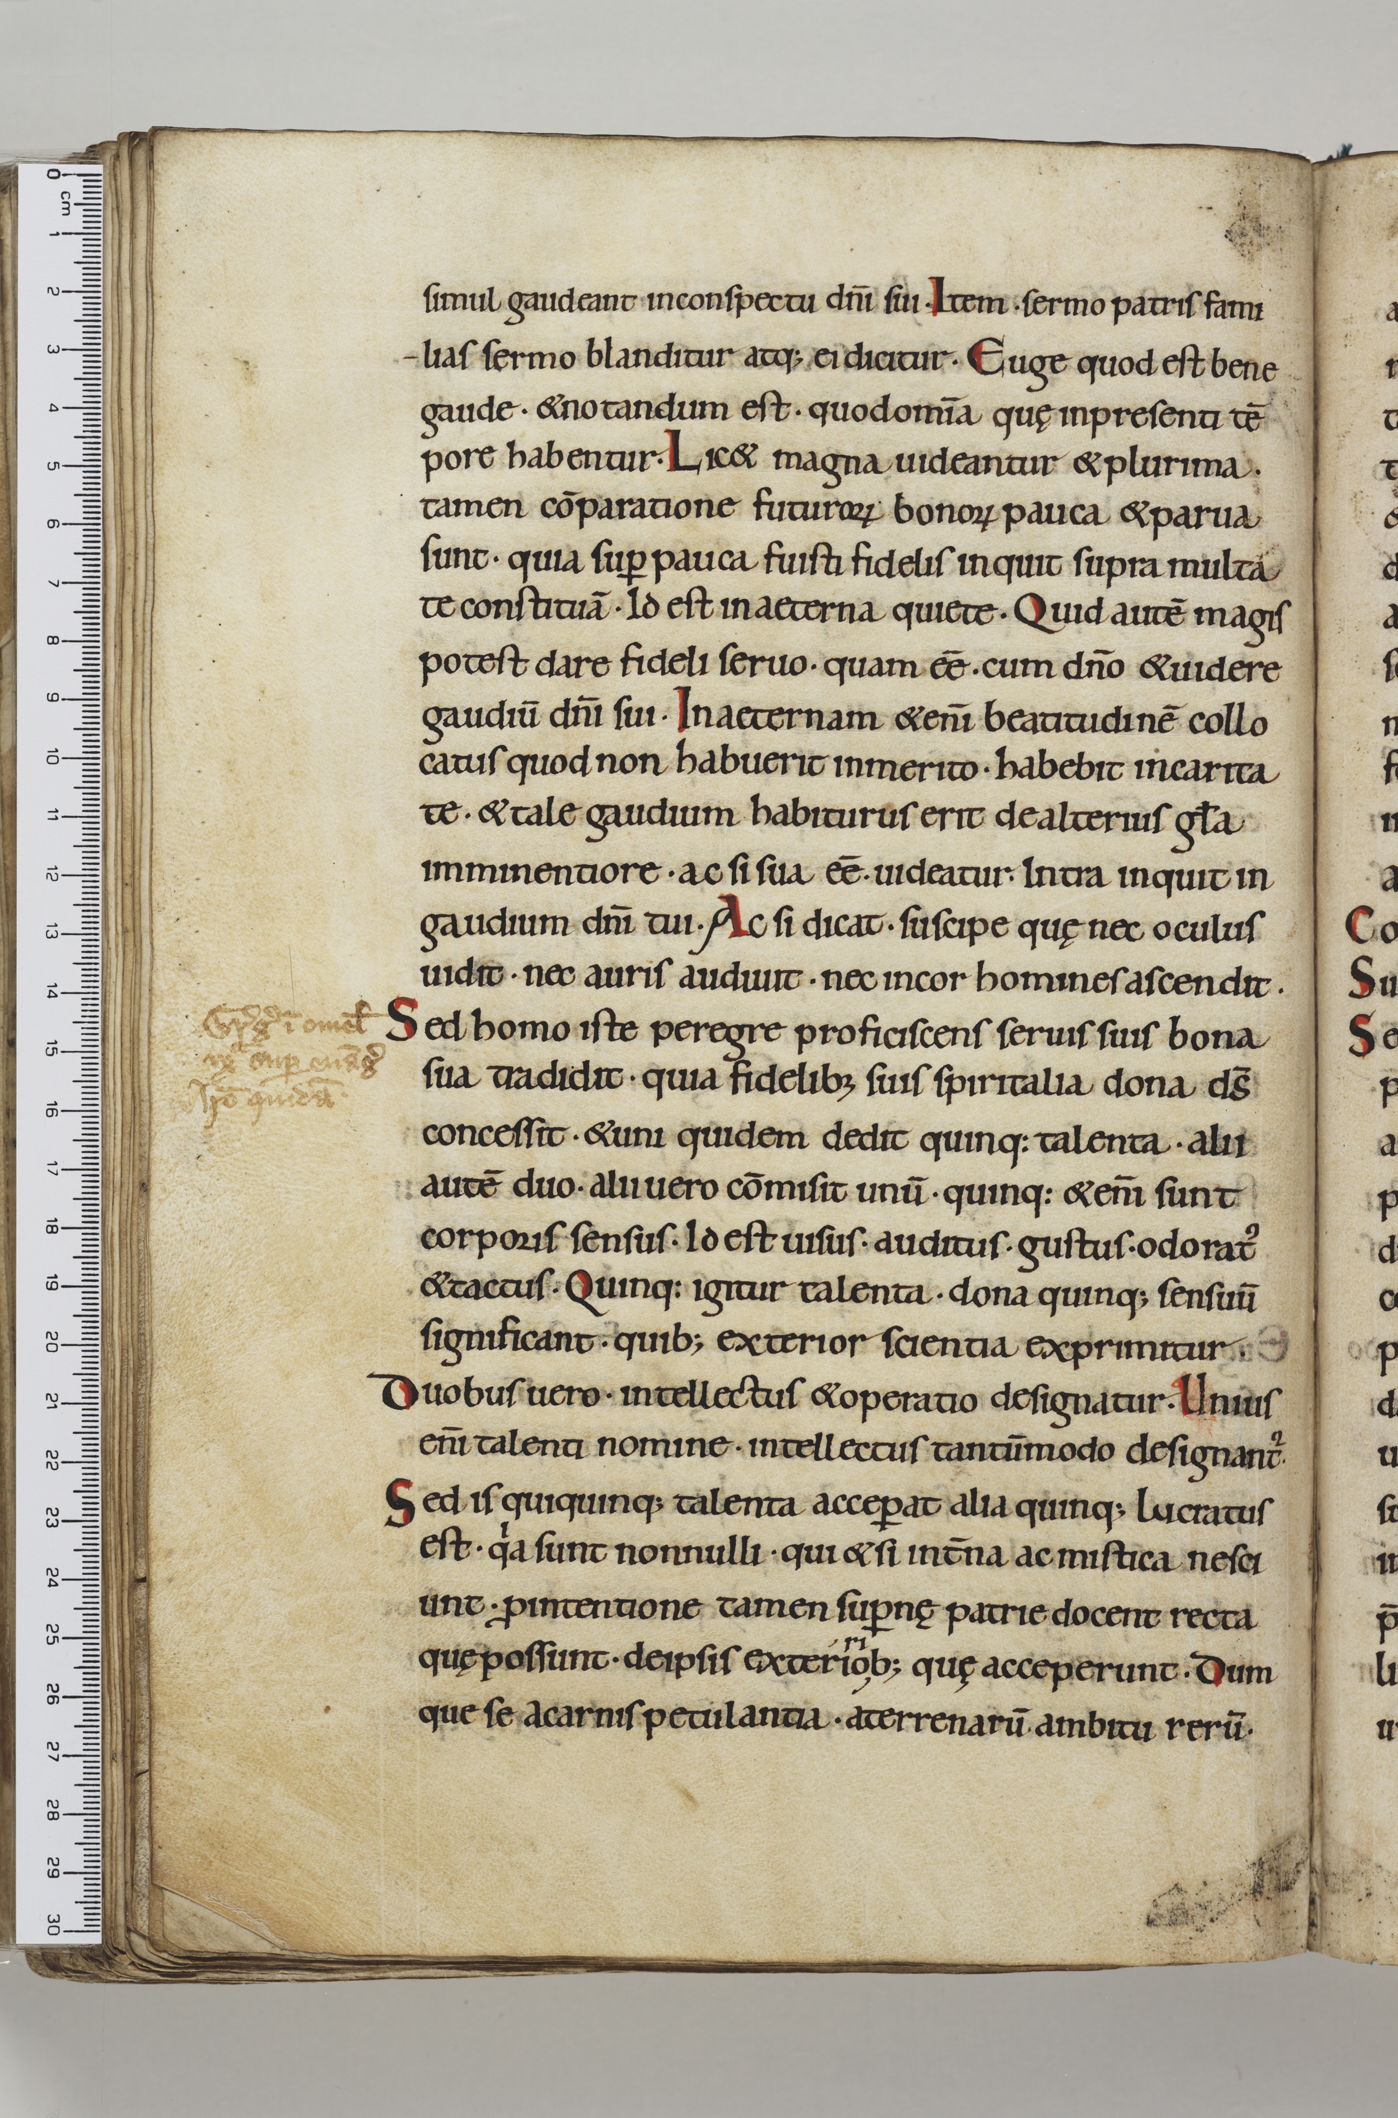 simul gaudeant inconspectu dñi sui. Item. sermo patris fami
-lias sermo blanditur atq; ei dicitur. Euge quod est bene
gaude. &notandum est. quodomīa quę inpresenti tē
pore habentur. Lic& magna uideantur &plurima.
tamen cōparatione futuroꝝ bonoꝝ pauca &parua
sunt. quia suꝑ pauca fuisti fidelis inquit supra multa
te constituā. Id est inaeterna quiete. Quid autē magis
potest dare fideli seruo. quam eē. cum dño &uidere
gaudiū dñi sui. Inaeternam &eni̅ beatitudinē collo
catus quod non habuerit inmerito. habebit incarita
te. &tale gaudium habiturus erit dealterius gła
imminentiore. ac si sua eē. uideatur. Intra inquit in
gaudium dñi tui. Ac si dicat. suscipe quę nec oculus
uidit. nec auris audiuit. nec incor homines ascendit.
Sed homo iste peregre proficiscens seruis suis bona
sua tradidit. quia fidelibꝫ suis spiritalia dona ds̄
concessit. &uni quidem dedit quinq: talenta. alii
autē duo. alii uero cōmisit unū. quinq: &eni̅ sunt
corporis sensus. Id est uisus. auditus. gustus. odoratꝰ
&tactus. Quinq: igitur talenta. dona quinq; sensuū
significant. quib; exterior scientia exprimitur.
Duobus uero. intellectus &operatio designatur. Unius
eni̅ talenti nomine. intellectus tantūmodo designant᷑.
Sed is quiquinq; talenta acceꝑat alia quinq; lucratus
est. qͥa sunt nonnulli. qui &si int̄na ac mistica nesci
unt. ꝓintentione tamen suꝑnę patrie docent recta
quępossunt. deipsis exterioríb; quę acceperunt. Dum
que se acarnis petulantia. aterrenarū ambitu rerū.